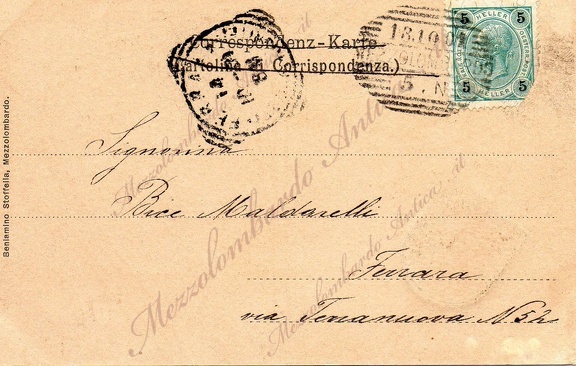 Correspondenz-Karte
(Cartolina di Corrispondenza.)
5 HELLER 5
5 HELLER 5
18.10.0
5. N
FERRARA
Signorina
Bice Maldarelli
Ferrara
via Terranuova N 52
Beniamino Stoffella, Mezzolombardo.
Mezzolombardo Antica.it
Mezzolombardo Antica.it
Mezzolombardo Antica.it